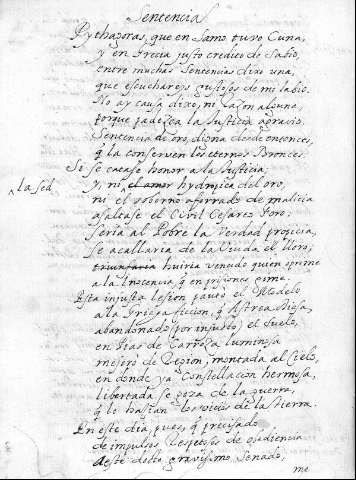 Sentencia
Pythagoras, que en Samo tuvo Cuna,
y en Grecia justo credito de Sabio,
entre muchas Sentencias dixo una,
que escuchareys gustosos de mi labio.
No ay causa, dixo, ni razon alguna
porque padezca la Justicia agravio.
Sentencia de oro, digna desde entonces,
q̃ la conserven los eternos Bronces.
Si se catasse honor a la Justicia;
^ la sed
y, ni el amor hydropica del oro,
ni el soborno aferrado de malicia
asaltase el Civil Cesareo Foro:
seria al Pobre la Verdad propicia,
se acallaria de la Viuda el lloro;
triunfaria huiria vencido quien oprime
a la Inocencia, q̃ en prisiones gime.
Esta injusta lesion pauso el Modelo
a la Griega ficcion, q̃ Astrea Diosa,
abandonado (por injusto) el suelo,
en Itas de Carroza luminosa
mejoró de Region, montada al Cielo,
en donde ya Constellacion hermosa,
libertada se goza de la guerra,
q̃ le hacian los vicios de la tierra.
En este dia, pues, q̃ precisado
de impulsos respetosos de obediencia
a este docto gravissimo Senado,
me